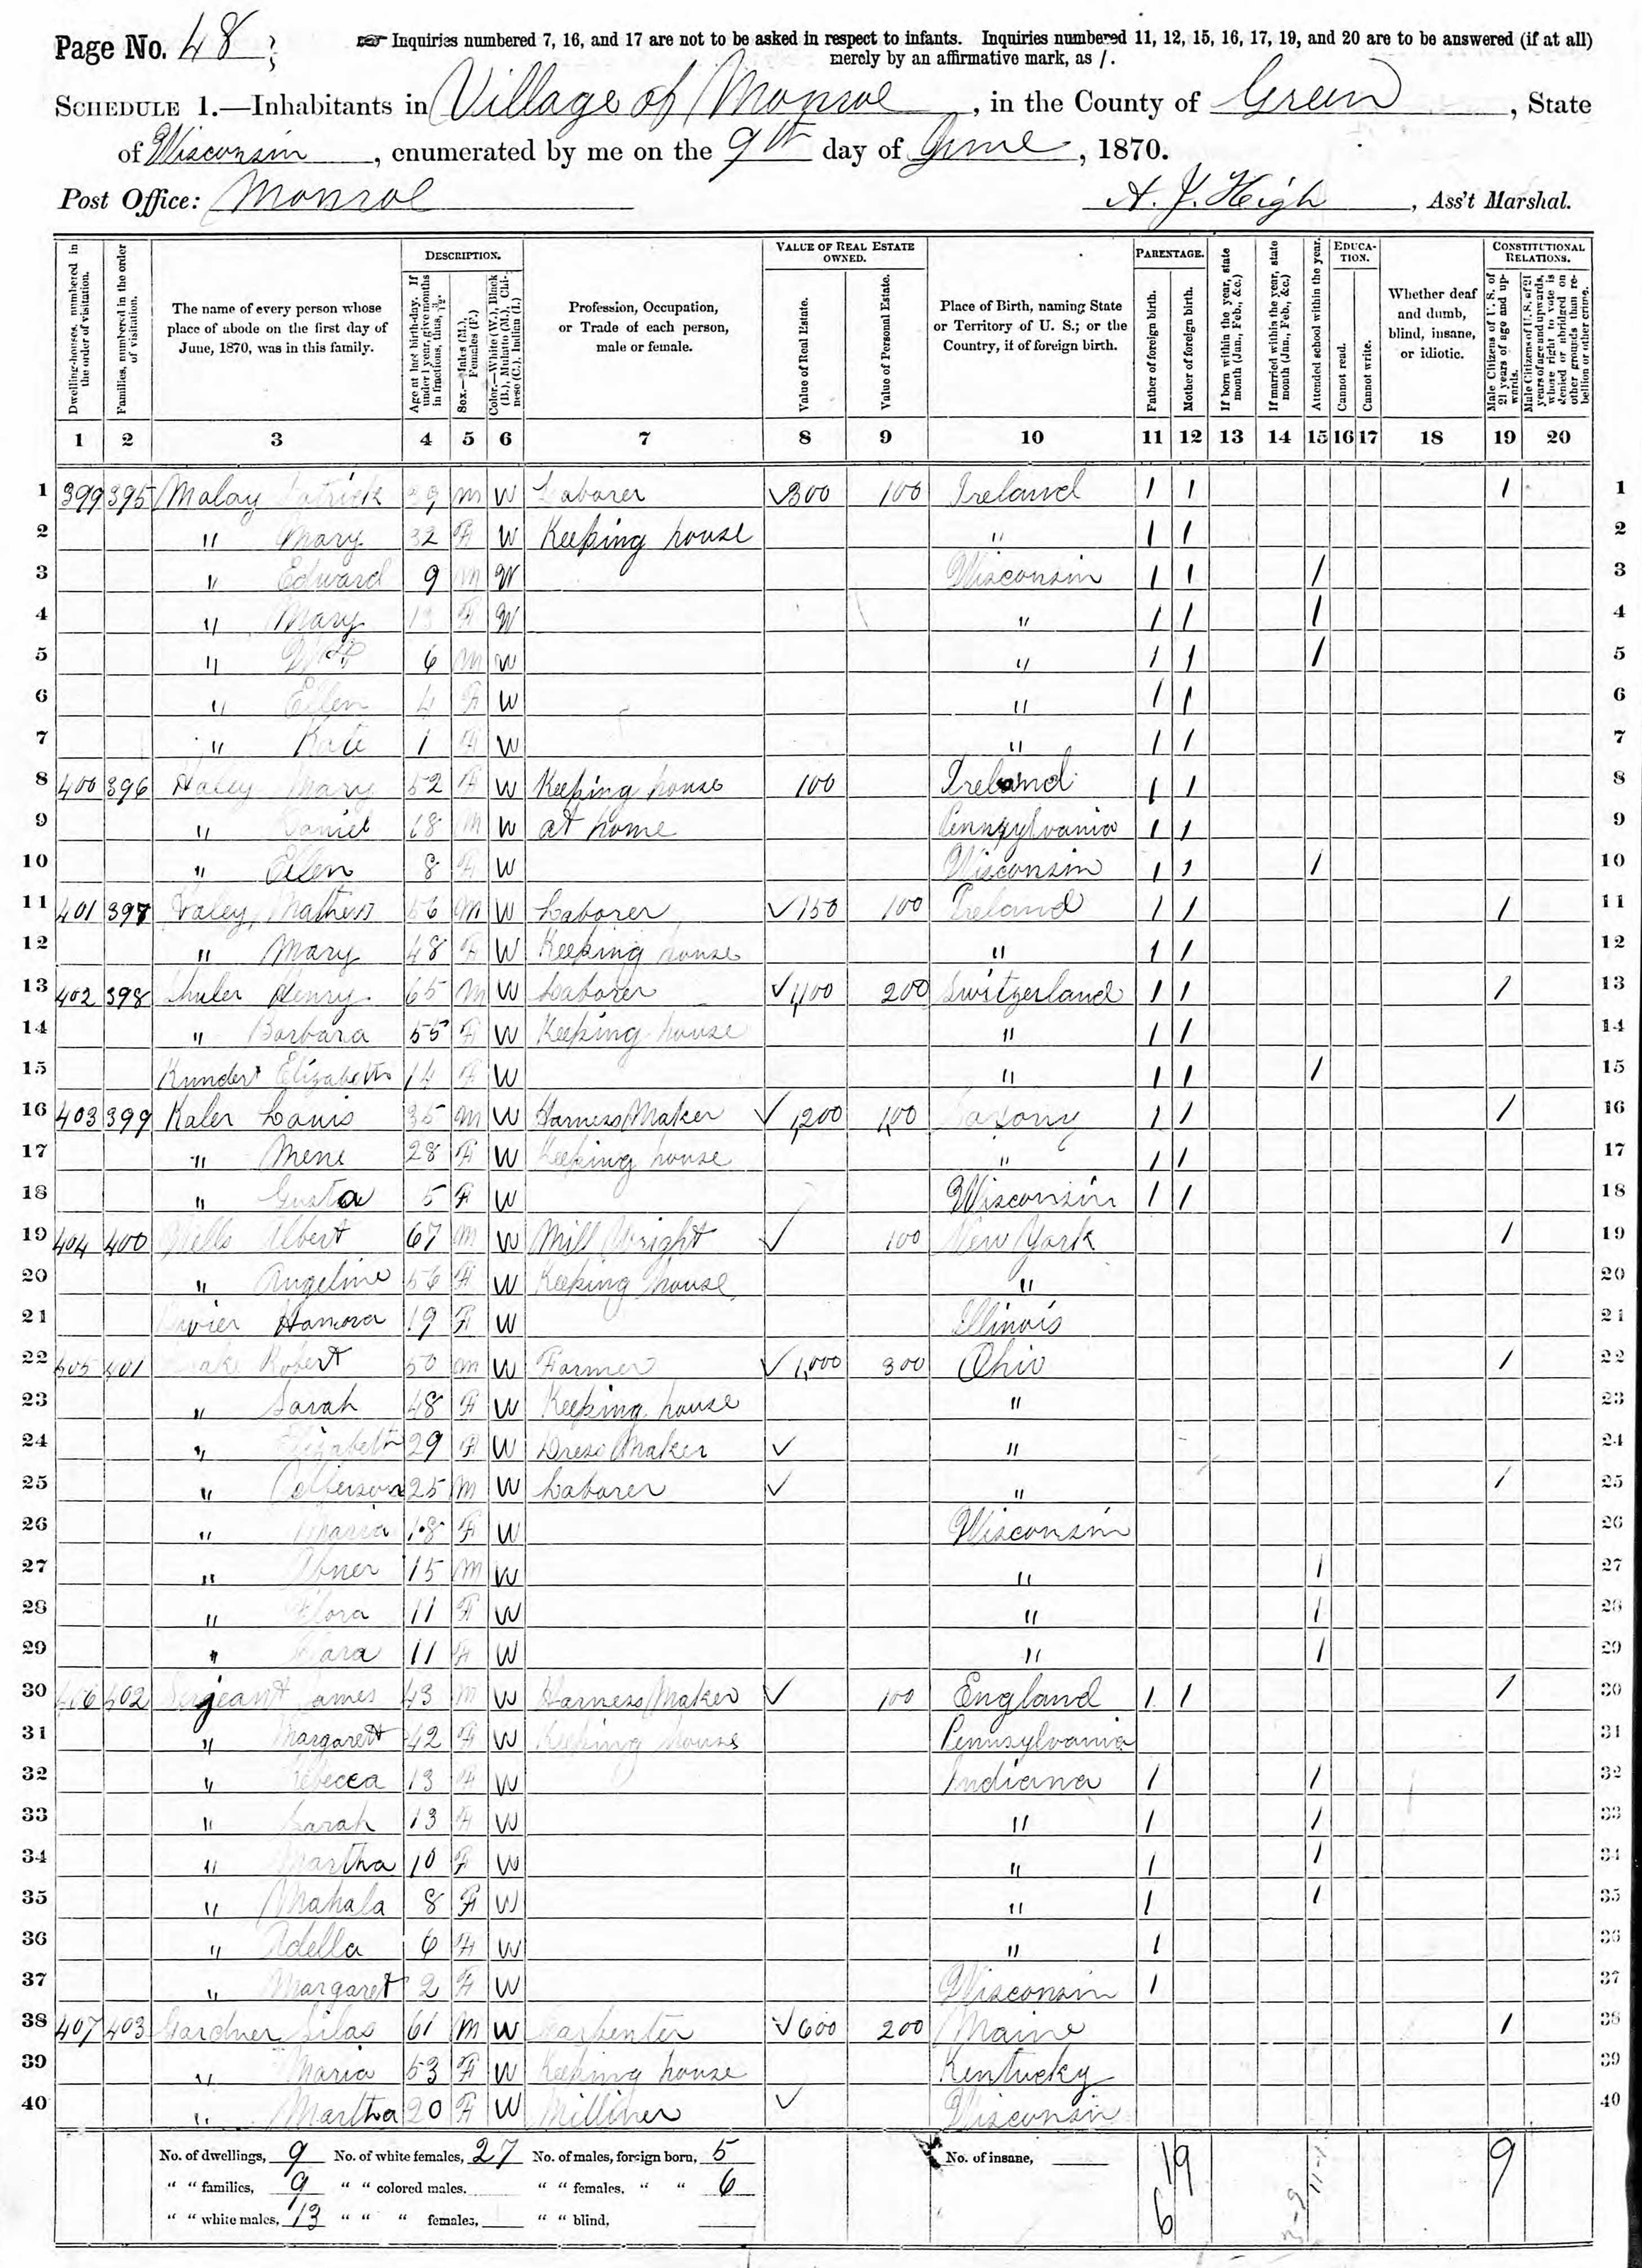 Page No. 48
Inquiries numbered 7, 16, and 17 are not to be asked in respect to infants. Inquiries numbered 11, 12, 15, 16, 17, 19, and 20 are to be answered (if at all)
merely by an affirmative mark, as /.
SCHEDULE 1.—Inhabitants in Village of Monroe, in the County of Green, State
of Wisconsin, enumerated by me on the 9th day of June, 1870.
Post Office: Monroe
Ass't Marshal.
Dwelling-houses, numbered in the order of visitation.
Families, numbered in the order of visitation.
The name of every person whose place of abode on the first day of June, 1870, was in this family.
DESCRIPTION.
Age at last birth-day. If under 1 year, give months in fractions, thus, 3/12.
Sex.—Males (M.), Females (F.)
Color.—White (W.), Black (B.), Mulatto (M.), Chinese (C.), Indian (I.)
Profession, Occupation, or Trade of each person, male or female.
VALUE OF REAL ESTATE OWNED.
Value of Real Estate.
Value of Personal Estate.
Place of Birth, naming State or Territory of U. S.; or the Country, if of foreign birth.
PARENTAGE.
Father of foreign birth.
Mother of foreign birth.
If born within the year, state month (Jan., Feb., &c.)
If married within the year, state month (Jan., Feb., &c.)
Attended school within the year.
EDUCATION.
Cannot read.
Cannot write.
Whether deaf and dumb, blind, insane, or idiotic.
CONSTITUTIONAL RELATIONS.
Male Citizens of U. S. of 21 years of age and upwards.
Male Citizens of U. S. of 21 years of age and upwards, whose right to vote is denied or abridged on other grounds than rebellion or other crime.
1 2 3 4 5 6 7 8 9 10 11 12 13 14 15 16 17 18 19 20
1 399 395 Malay Patrick 39 M W Laborer ✓ 300 100 Ireland / / / 1
2 " Mary 32 F W Keeping house " / / 2
3 " Edward 9 M W Wisconsin / / / 3
4 " Mary F W " / / / 4
5 " Wm 6 M W " / / / 5
6 " Ellen 4 F W " / / 6
7 " Kate 1 F W " / / 7
8 400 396 Haley Mary 52 F W Keeping house 100 Ireland / / 8
9 " Daniel M W at home Pennsylvania / / 9
10 " Ellen 8 F W Wisconsin / / / 10
11 401 397 Mathew 56 M W Laborer ✓ 150 100 Ireland / / / 11
12 " Mary 48 F W Keeping house " / / 12
13 402 398 Henry 65 M W Laborer ✓ 1,100 200 Switzerland / / / 13
14 " Barbara 55 F W Keeping house " / / 14
15 Kundert Elizabeth 14 F W " / / / 15
16 403 399 Kaler Louis 35 M W Harness Maker ✓ 1,200 100 Saxony / / / 16
17 " Mene 28 F W Keeping house " / / 17
18 " Gusta 5 F W Wisconsin / / 18
19 404 400 Wells Albert 67 M W Mill Wright ✓ 100 New York / 19
20 " Angeline 56 F W Keeping house " 20
21 19 F W Illinois 21
22 405 401 Robert 50 M W Farmer ✓ 1,000 300 Ohio / 22
23 " Sarah 48 F W Keeping house " 23
24 " Elizabeth 29 F W Dress Maker ✓ " 24
25 " 25 M W Laborer ✓ " / 25
26 " Maria 18 F W Wisconsin 26
27 " Abner 15 M W " / 27
28 " Flora 11 F W " / 28
29 " 11 F W " / 29
30 406 402 Sergeant James 43 M W Harness Maker ✓ 100 England / / / 30
31 " Margarett 42 F W Keeping house Pennsylvania 31
32 " Rebecca 13 F W Indiana / / 32
33 " Sarah 13 F W " / / 33
34 " Martha 10 F W " / / 34
35 " Mahala 8 F W " / / 35
36 " Adella 6 F W " / 36
37 " Margaret 2 F W Wisconsin / 37
38 407 403 Gardner Silas 61 M W Carpenter ✓ 600 200 Maine / 38
39 " Maria 53 F W Keeping house Kentucky 39
40 " Martha 20 F W Milliner ✓ Wisconsin 40
No. of dwellings, 9 No. of white females, 27 No. of males, foreign born, 5 No. of insane, 19 9
" " families, 9 " " colored males. " " females, " " 6
" " white males, 13 " " " females, " " blind, 6